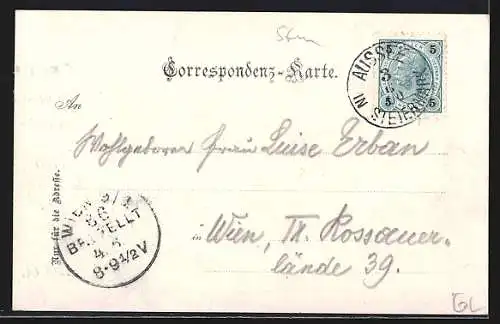 Correspondenz-Karte.
AUSSEE
IN STEIERMARK
5 5
5 5
An
Wohlgeboren Frau Luise Erban
in Wien, IX. Rossauer-
lände 39.
Nur für die Adresse.
WIEN 9/
BESTELLT
8-9 1/2 V